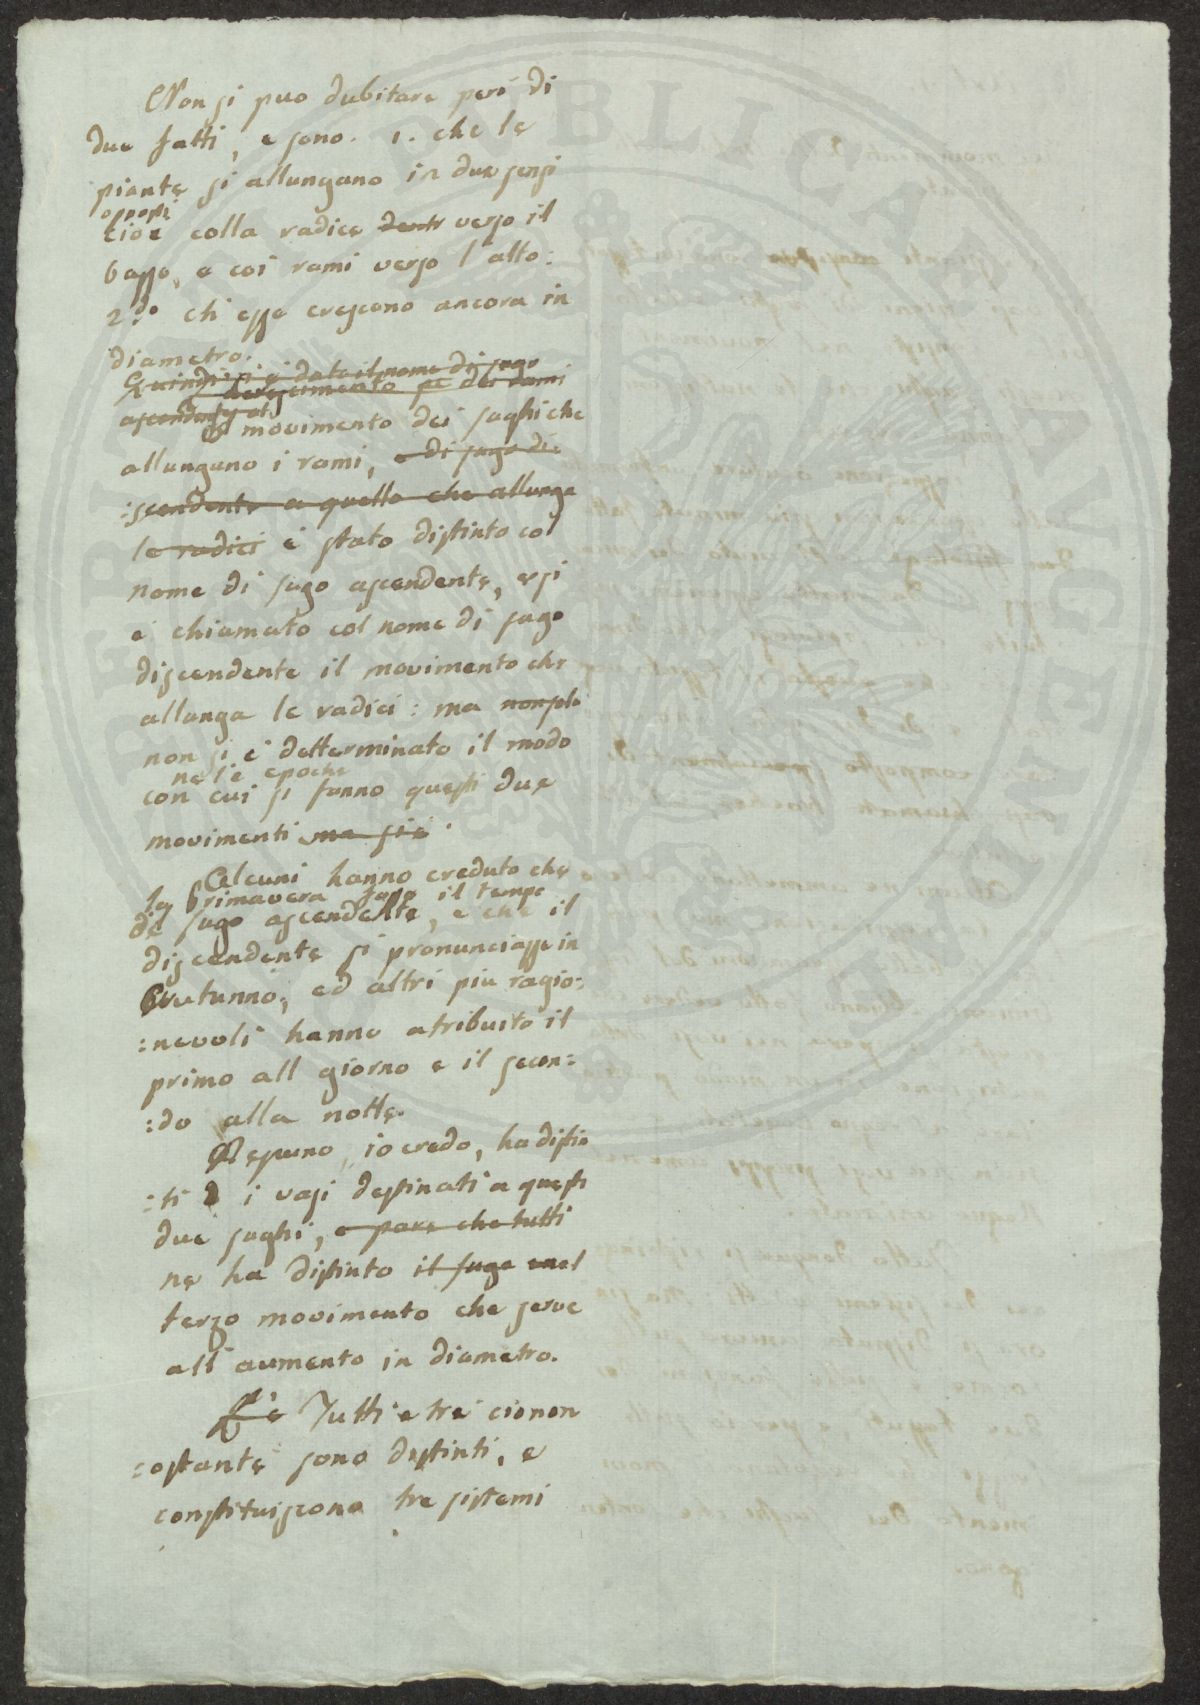 Non si puo dubitare però di
due fatti, e sono. 1. che le
piante si allungano in due sensi
opposti
cioè colla radice dentr verso il
basso, e coi rami verso l'alto:
2.do ch'esse crescono ancora in
diametro.
Quindi si è dato il nome di sugo
accrescimento dei rami
ascendente al
Il movimento dei sughi che
allungano i rami, e di sugo di=
:scendente a quello che allunga
le radici è stato distinto col
nome di sugo ascendente, e si
è chiamato col nome di sugo
discendente il movimento che
allunga le radici: ma non solo
non si è detterminato il modo
ne le epoche
con cui si fanno questi due
movimenti ma si è.
Alcuni hanno creduto che
la Primavera fosse il tempo
del sugo ascendente, e che il
discendente si pronunciasse in
Autunno, ed altri più ragio:
:nevoli hanno atribuito il
primo all giorno e il secon:
:do alla notte.
Nessuno, io credo, ha distin
:ti i vasi destinati a questi
due sughi, e pare che tutti
ne ha distinto il sugo nel
terzo movimento che serve
all'aumento in diametro.
Tutti e tre cionon
:ostante sono distinti, e
constituiscono tre sistemi